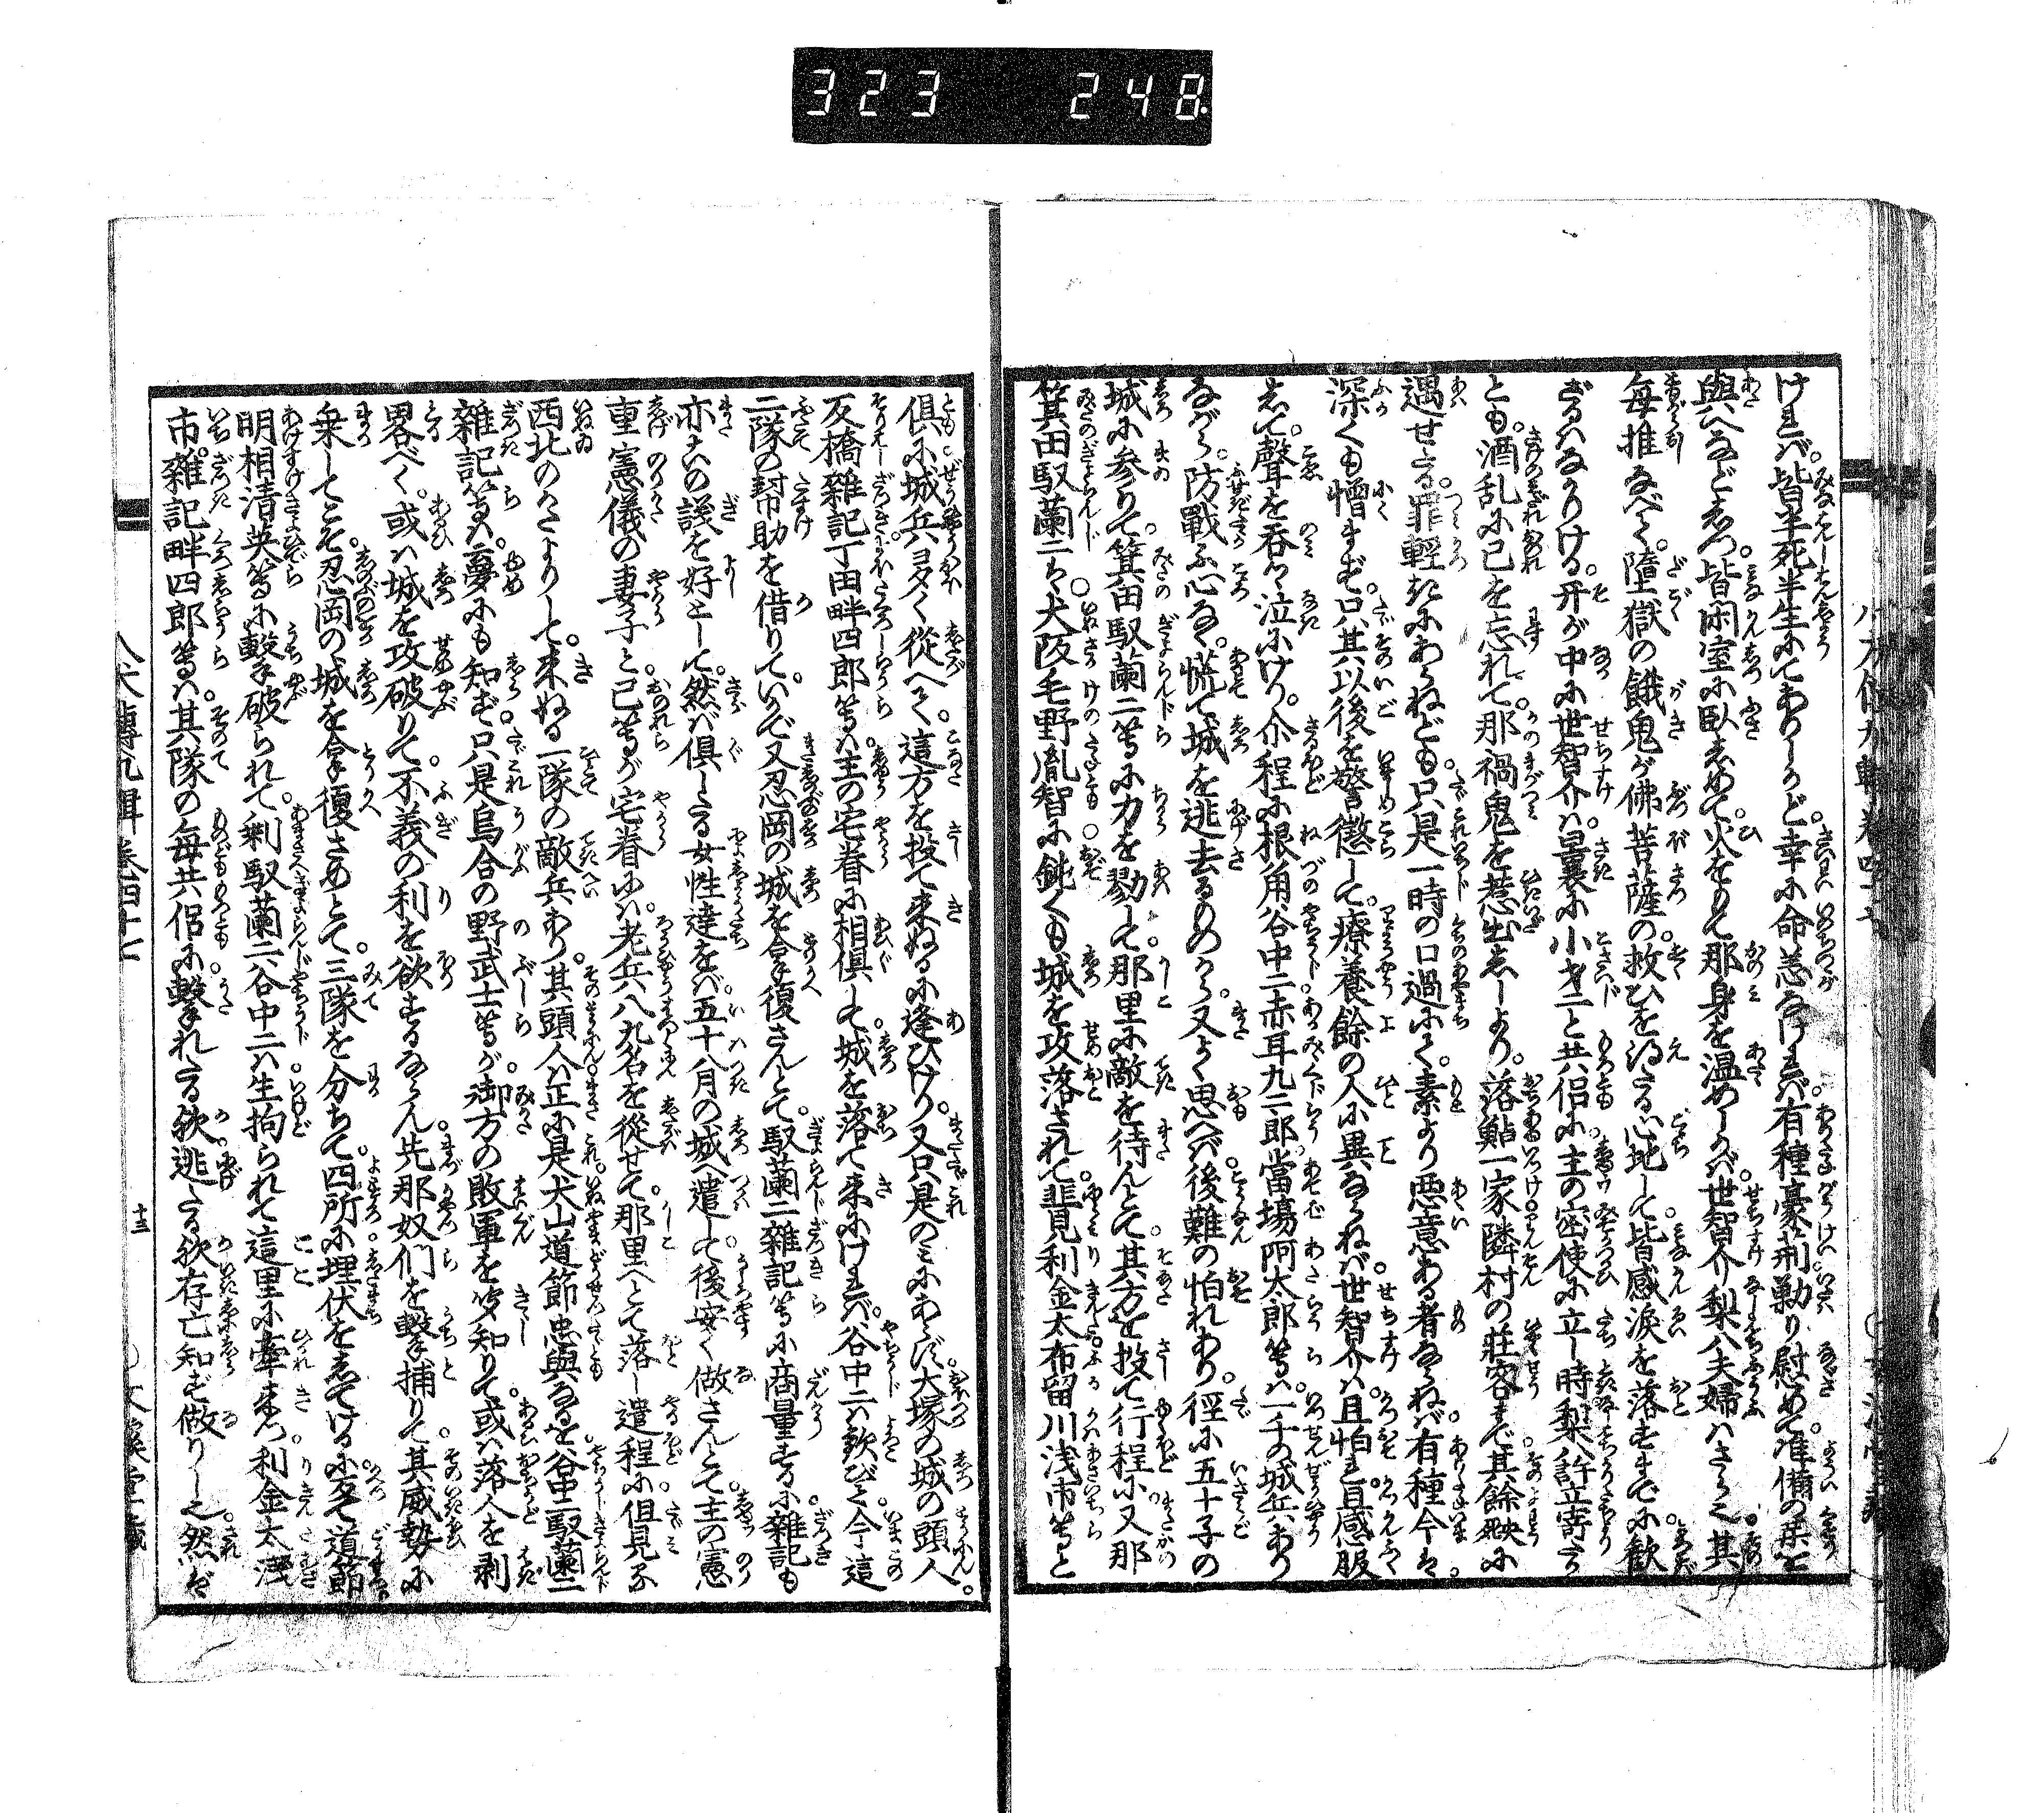 323 248
けれバ。皆半死半生にてありしかど。幸に命恙なけれバ。有種豪荊勦り慰めて。准備の薬を
與へなどしつ。皆閑室に臥しめて。火をもて那身を温めしかバ。世智介梨八夫婦ハさら也。其
毎推なべて。墮獄の餓鬼が佛菩薩の。救ひを得たる心地して。皆感涙を落すまでに。歓
ざるハなかりける。开が中に世智介ハ。曩に小才二と共侶に。主の密使に立し時。梨八許立寄たり
とも。酒乱に己を忘れて。那禍鬼を惹出ししより。落鮎一家隣村の。莊客まで。其餘殃に
遇せたる。罪軽きにあらねども。只是一時の口過にて。素より悪意ある者ならねバ。有種今ハ。
深くも憎まず。只其以後を警懲して。療養餘の人に異ならねバ。世智介ハ。且怕れ且感服
して。聲を呑て泣にけり。尒程に根角谷中二赤耳九二郎。當場阿太郎等ハ。一千の城兵あり
ながら。防戰ふ心なく。慌て城を逃去るものから。又よく思へバ後難の怕れあり。徑に五十子の
城に参りて。箕田馭蘭二等に力を勠して。那里に敵を待んとて。其方を投て行程に。又那
箕田馭蘭二ハ。犬阪毛野胤智に。鈍くも城を攻落されて。韮見利金太布留川浅市等と
倶に城兵多く從へて。這方を投て来ぬるに逢ひけり。又只是のミにあらず。大塚の城の頭人。
反橋雜記丁田畔四郎等ハ。主の宅眷に相倶して。城を落て来にけれバ。谷中二ハ歓びて。今這
二隊の幇助を借りて。いかで又忍岡の城を拿復さんとて。馭蘭二雜記等に商量するに。雜記も
亦この議を好とし。然バ倶したる女性達をバ。五十八月の城へ遣して。後安く做さんとて。主の憲
重憲儀の妻子と。己等が宅眷にハ。老兵八九名を從せて。那里へとて落し遣程に。但見れバ
西北のかたよりして。来ぬる一隊の敵兵あり。其頭人ハ正に是。犬山道節忠與なるを。谷中二馭蘭二
雜記等ハ。夢にも知ず。只是烏合の野武士等が。御方の敗軍を猜知りて。或ハ落人を剥
畧べく。或ハ城を攻破りて。不義の利を欲するならん。先那奴们を撃捕りて。其威勢に
乗してこそ。忍岡の城を拿復さめとて。三隊を分ちて。四所に埋伏をしてけるに。反て道節
明相清英等に撃破られて。剰馭蘭二谷中二ハ生拘られて。這里に牽来つ。利金太浅
市。雜記畔四郎等ハ。其隊の毎共侶に。撃れたる歟。逃たる歟。存亡知ず做りし也。然バ
八犬傳九輯卷四十七
十三
文溪堂藏